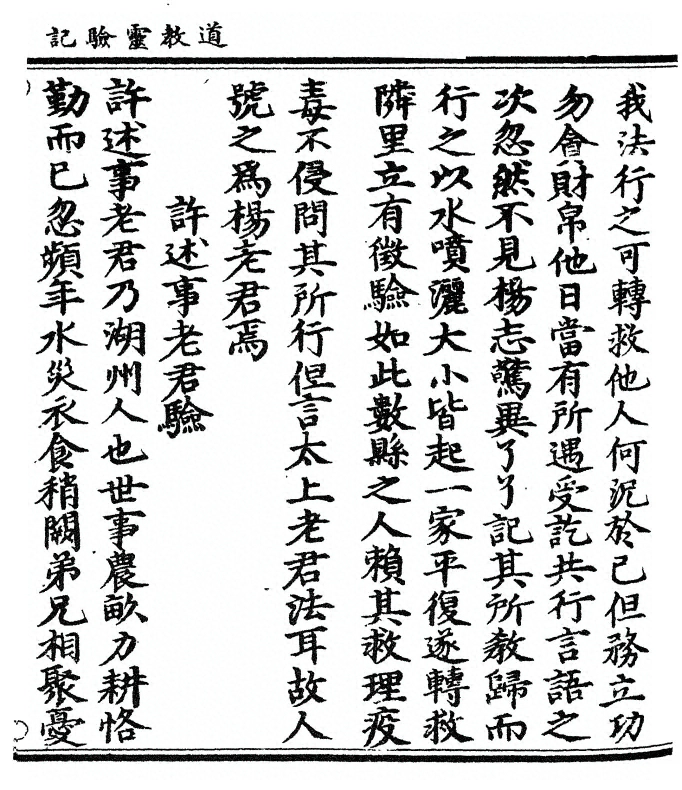 道教靈驗記
我法行之可轉救他人何況於已但務立功
勿會財帛他日當有所遇受訖共行言語之
次忽然不見楊志驚異了了記其所教歸而
行之以水噴灑大小皆起一家平復遂轉救
隣里立有徵驗如此數縣之人賴其救理疫
毒不侵問其所行但言太上老君法耳故人
號之爲楊老君焉
許述事老君驗
許述事老君乃湖州人也世事農畝力耕恪
勤而已忽頻年水災衣食稍闕弟兄相聚憂